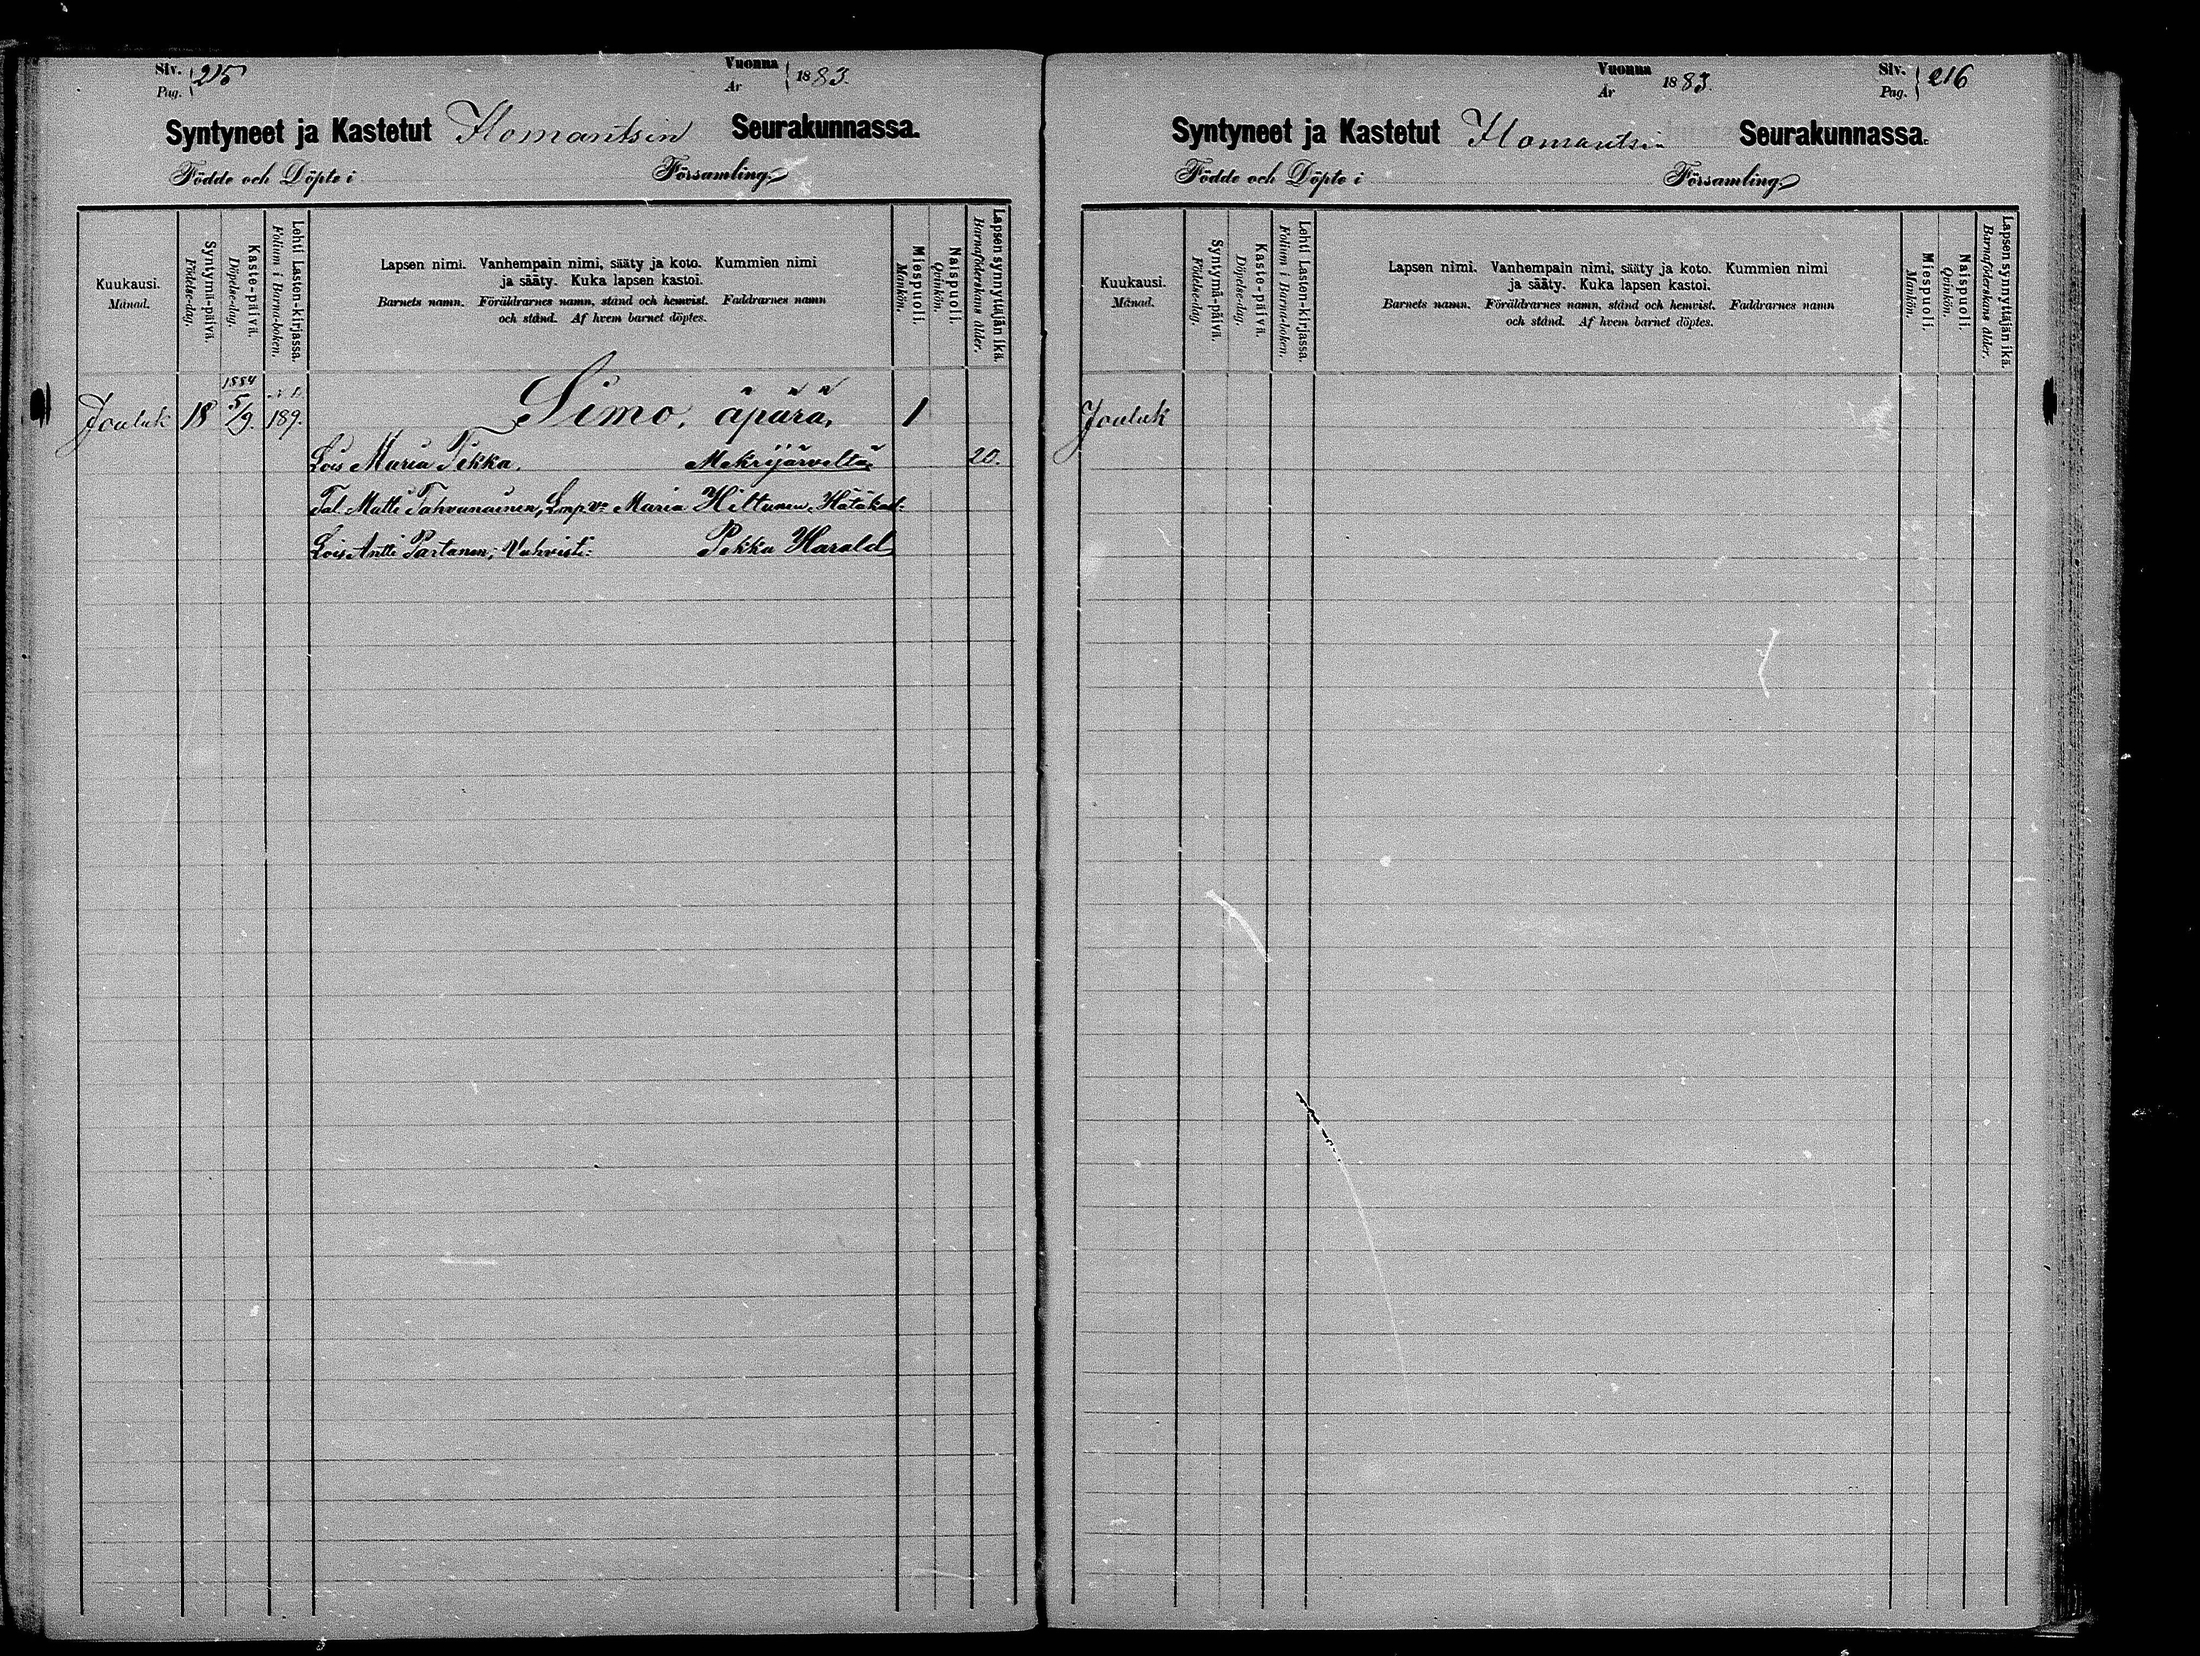 Siv. 215
Pag.
Vuonna 1883.
År
Syntyneet ja Kastetut Ilomantsin Seurakunnassa.
Födde och Döpte i Församling.
Kuukausi.
Månad.
Syntymä-päivä.
Födelse-dag.
Kaste-päivä.
Döpelse-dag.
Lehti Lasten-kirjassa.
Folium i Barna-boken.
Lapsen nimi. Vanhempain nimi, sääty ja koto. Kummien nimi
ja sääty. Kuka lapsen kastoi.
Barnets namn. Föräldrarnes namn, stånd och hemvist. Faddrarnes namn
och stånd. Af hvem barnet döptes.
Miespuoli.
Mankön.
Naispuoli.
Qvinkön.
Lapsen synnyttäjän ikä.
Barnaföderskans ålder.
1884
Jouluk 18 5/9. 189. Simo, äpärä, 1
Lois Maria Tekka. Mekrijärveltä 20.
Tal. Matti Tahvanainen, Lmp. v:o Maria Hiltunen. Hätäkast:
Lois. Antti Partanen; Vahvisti: Pekka Harald
Vuonna 1883.
År
Siv. 216
Pag.
Syntyneet ja Kastetut Ilomantsin Seurakunnassa.
Födde och Döpte i Församling.
Kuukausi.
Månad.
Syntymä-päivä.
Födelse-dag.
Kaste-päivä.
Döpelse-dag.
Lehti Lasten-kirjassa.
Folium i Barna-boken.
Lapsen nimi. Vanhempain nimi, sääty ja koto. Kummien nimi
ja sääty. Kuka lapsen kastoi.
Barnets namn. Föräldrarnes namn, stånd och hemvist. Faddrarnes namn
och stånd. Af hvem barnet döptes.
Miespuoli.
Mankön.
Naispuoli.
Qvinkön.
Lapsen synnyttäjän ikä.
Barnaföderskans ålder.
Jouluk